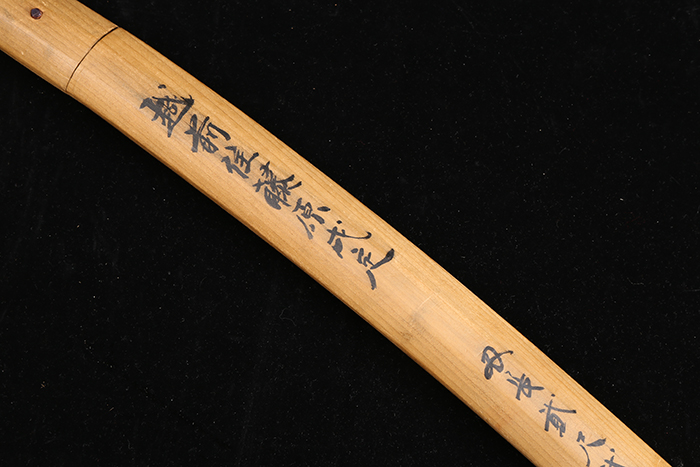 越前住藤原成定
刃長貳尺